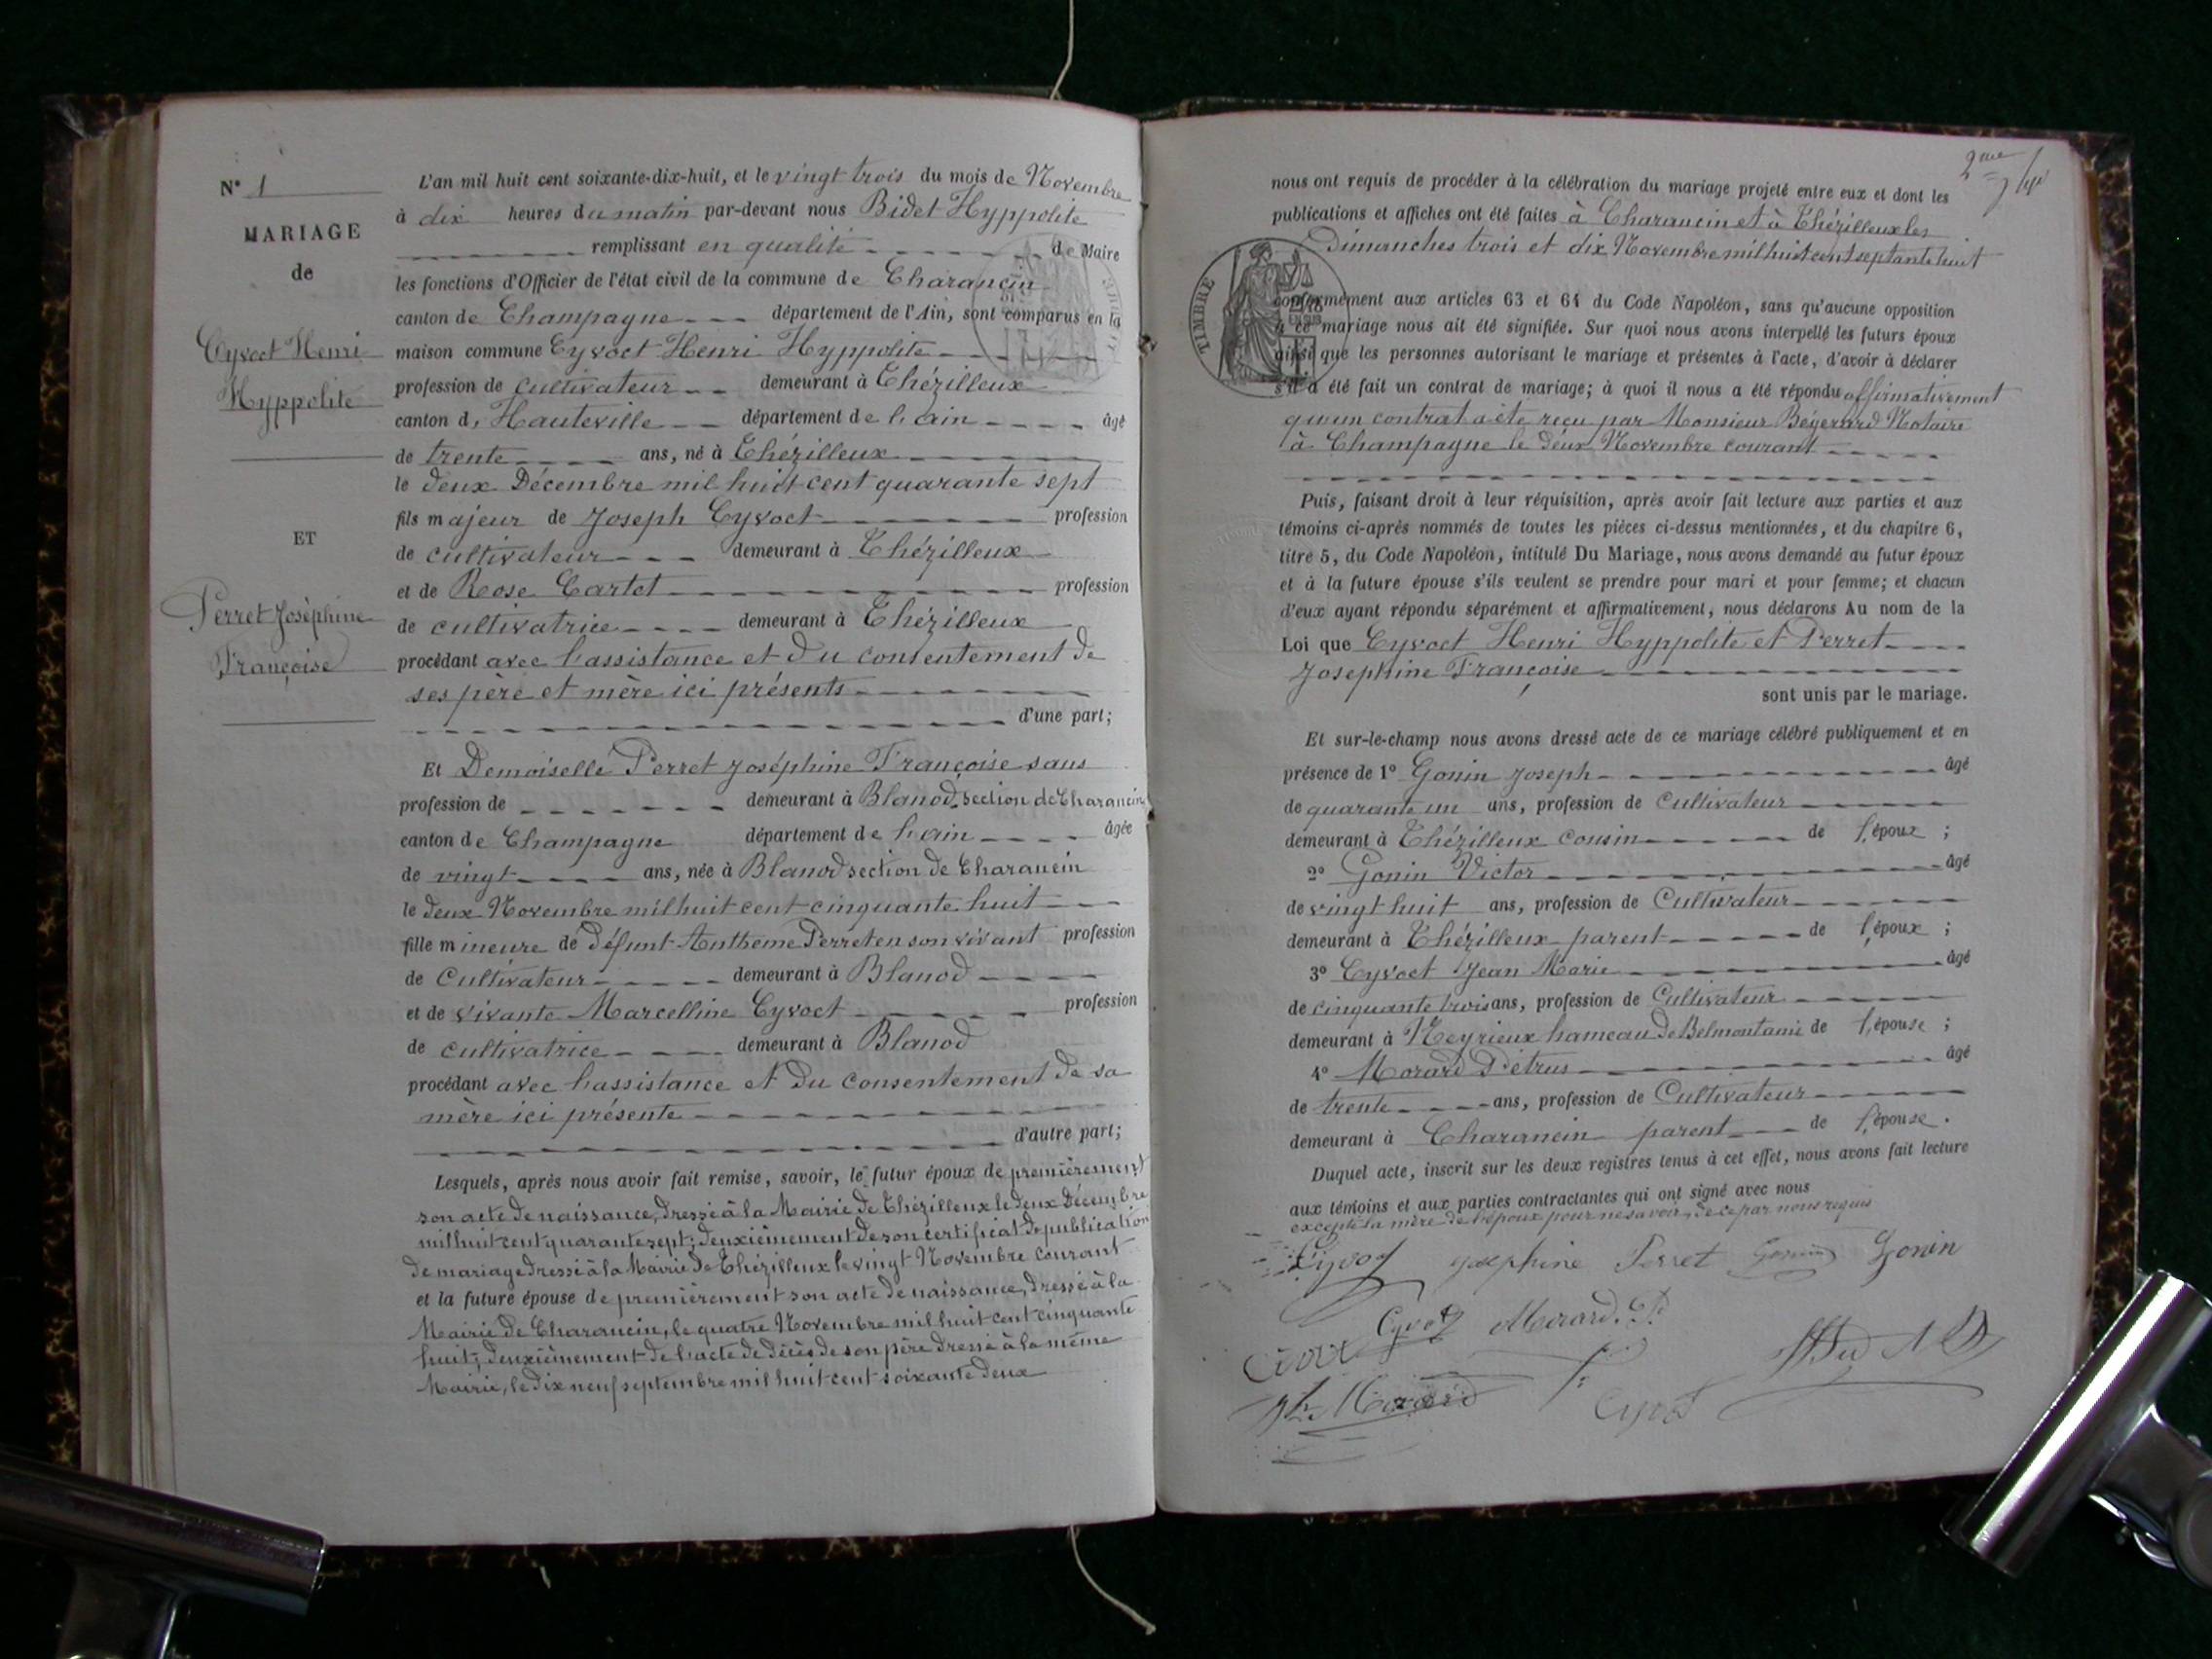 N° 1
MARIAGE
de
Cyvoct Henri
Hyppolite
ET
Perret Joséphine
Françoise
L'an mil huit cent soixante-dix-huit, et le vingt trois du mois de Novembre
à dix heures du matin par-devant nous Bidet Hyppolite
remplissant en qualité de Maire
les fonctions d'Officier de l'état civil de la commune de Charancin
canton de Champagne département de l'Ain, sont comparus en la
maison commune Cyvoct Henri Hyppolite
profession de cultivateur demeurant à Thézilleux
canton d, Hauteville département de l'ain âgé
de trente ans, né à Thézilleux
le deux Décembre mil huit cent quarante sept
fils majeur de Joseph Cyvoct profession
de cultivateur demeurant à Thézilleux
et de Rose Cartet profession
de cultivatrice demeurant à Thézilleux
procédant avec l'assistance et du consentement de
ses père et mère ici présents
d'une part;
Et Demoiselle Perret Joséphine Françoise sans
profession de demeurant à Blanod, section de Charancin
canton de Champagne département de l'ain âgée
de vingt ans, née à Blanod section de Charancin
le deux Novembre mil huit cent cinquante huit
fille mineure de défunt Antheme Perret en son vivant profession
de Cultivateur demeurant à Blanod
et de vivante Marcelline Cyvoct profession
de cultivatrice demeurant à Blanod
procédant avec l'assistance et du consentement de sa
mère ici présente
d'autre part;
Lesquels, après nous avoir fait remise, savoir, le futur époux de premièrement
son acte de naissance, dressé à la Mairie de Thézilleux le deux Décembre
mil huit cent quarante sept; deuxièmement de son certificat de publication
de mariage dressé à la Mairie de Thézilleux le vingt Novembre courant
et la future épouse de premièrement son acte de naissance, dressé à la
Mairie de Charancin, le quatre Novembre mil huit cent cinquante
huit; deuxièmement de l'acte de décès de son père dressé à la même
Mairie, le dix neuf septembre mil huit cent soixante deux
2me
nous ont requis de procéder à la célébration du mariage projeté entre eux et dont les
publications et affiches ont été faites à Charancin et à Thézilleux les
Dimanches trois et dix Novembre mil huit cent septante huit
TIMBRE
conformément aux articles 63 et 64 du Code Napoléon, sans qu'aucune opposition
à ce mariage nous ait été signifiée. Sur quoi nous avons interpellé les futurs époux
ainsi que les personnes autorisant le mariage et présentes à l'acte, d'avoir à déclarer
s'il a été fait un contrat de mariage; à quoi il nous a été répondu affirmativement
qu'un contrat a été reçu par Monsieur Bégerard Notaire
à Champagne le deux Novembre courant
Puis, faisant droit à leur réquisition, après avoir fait lecture aux parties et aux
témoins ci-après nommés de toutes les pièces ci-dessus mentionnées, et du chapitre 6,
titre 5, du Code Napoléon, intitulé Du Mariage, nous avons demandé au futur époux
et à la future épouse s'ils veulent se prendre pour mari et pour femme; et chacun
d'eux ayant répondu séparément et affirmativement, nous déclarons Au nom de la
Loi que Cyvoct Henri Hyppolite et Perret
Josephine Françoise
sont unis par le mariage.
Et sur-le-champ nous avons dressé acte de ce mariage célébré publiquement et en
présence de 1° Gonin Joseph âgé
de quarante un ans, profession de Cultivateur
demeurant à Thézilleux cousin de l'époux ;
2° Gonin Victor âgé
de vingt huit ans, profession de Cultivateur
demeurant à Thézilleux parent de l'époux ;
3° Cyvoct Jean Marie âgé
de cinquante trois ans, profession de Cultivateur
demeurant à Neyrieux hameau de Belmont ami de l'épouse ;
4° Morard Pétrus âgé
de trente ans, profession de Cultivateur
demeurant à Charancin parent de l'épouse.
Duquel acte, inscrit sur les deux registres tenus à cet effet, nous avons fait lecture
aux témoins et aux parties contractantes qui ont signé avec nous
excepté la mère de l'époux pour ne savoir, de ce par nous requis
Cyvoct Josephine Perret Gonin Gonin
Cyvoct Morard
Morard Cyvoct